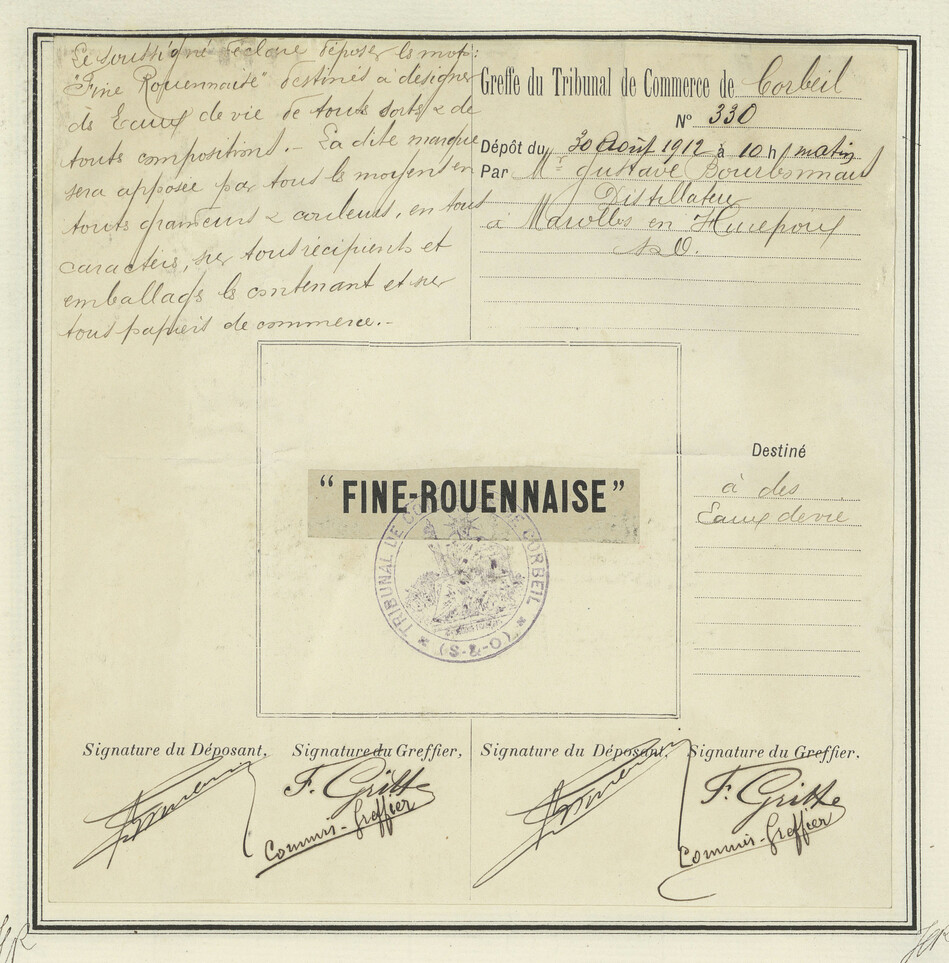 Le soussigné déclare déposer les mots:
"Fine Rouennaise" destinés à désigner
des Eaux de vie de toutes sortes & de
toutes compositions. - La dite marque
sera apposée par tous les moyens en
toutes grandeurs & couleurs, en tous
caractères, sur tous récipients et
emballages les contenant et sur
tous papiers de commerce. -
Greffe du Tribunal de Commerce de Corbeil
N° 330
Dépôt du 30 Août 1912 à 10 h/ matin
Par Mr Gustave Bourbonnais
Distillateur
à Marolles en Hurepoix
S&O.
"FINE-ROUENNAISE"
TRIBUNAL DE COMMERCE DE CORBEIL
(S-&-O)
Destiné
à des
Eaux de vie
Signature du Déposant. Signature du Greffier,
F. Gritte
Commis-Greffier
Signature du Déposant. Signature du Greffier.
F. Gritte
Commis-Greffier